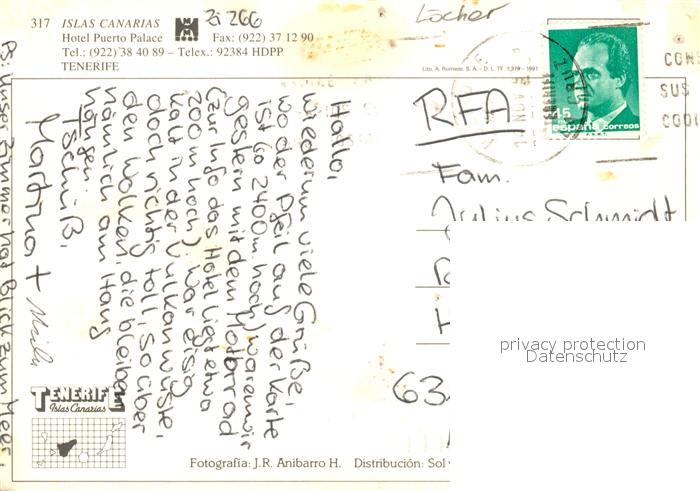 317 ISLAS CANARIAS
Hotel Puerto Palace Fax: (922) 37 12 90
Tel.: (922) 38 40 89 – Telex.: 92384 HDPP
TENERIFE
Zi 266
Locher
Lito. A. Romero, S. A. - D. L. TF. 1.379 - 1991
45
españa correos
TENERIFE
CRUZ
CONS
SUS
CODI
Hallo,
wiederum viele Grüße,
wo der Pfeil auf der Karte
ist (ca 2400m hoch) waren wir
gestern mit dem Motorrad
(zur Info das Hotel liegt etwa
200m hoch) War eisig
kalt in der Vulkanwüste,
doch richtig toll, so über
den Wolken, die bleiben
nämlich am Hang
hängen
Tschüß,
Martina +
PS Unser Zimmer hat Blick zum Meer.
RFA
Fam.
Julius Schmidt
63
privacy protection
Datenschutz
TENERIFE
Islas Canarias
Fotografía: J.R. Anibarro H. Distribución: Sol